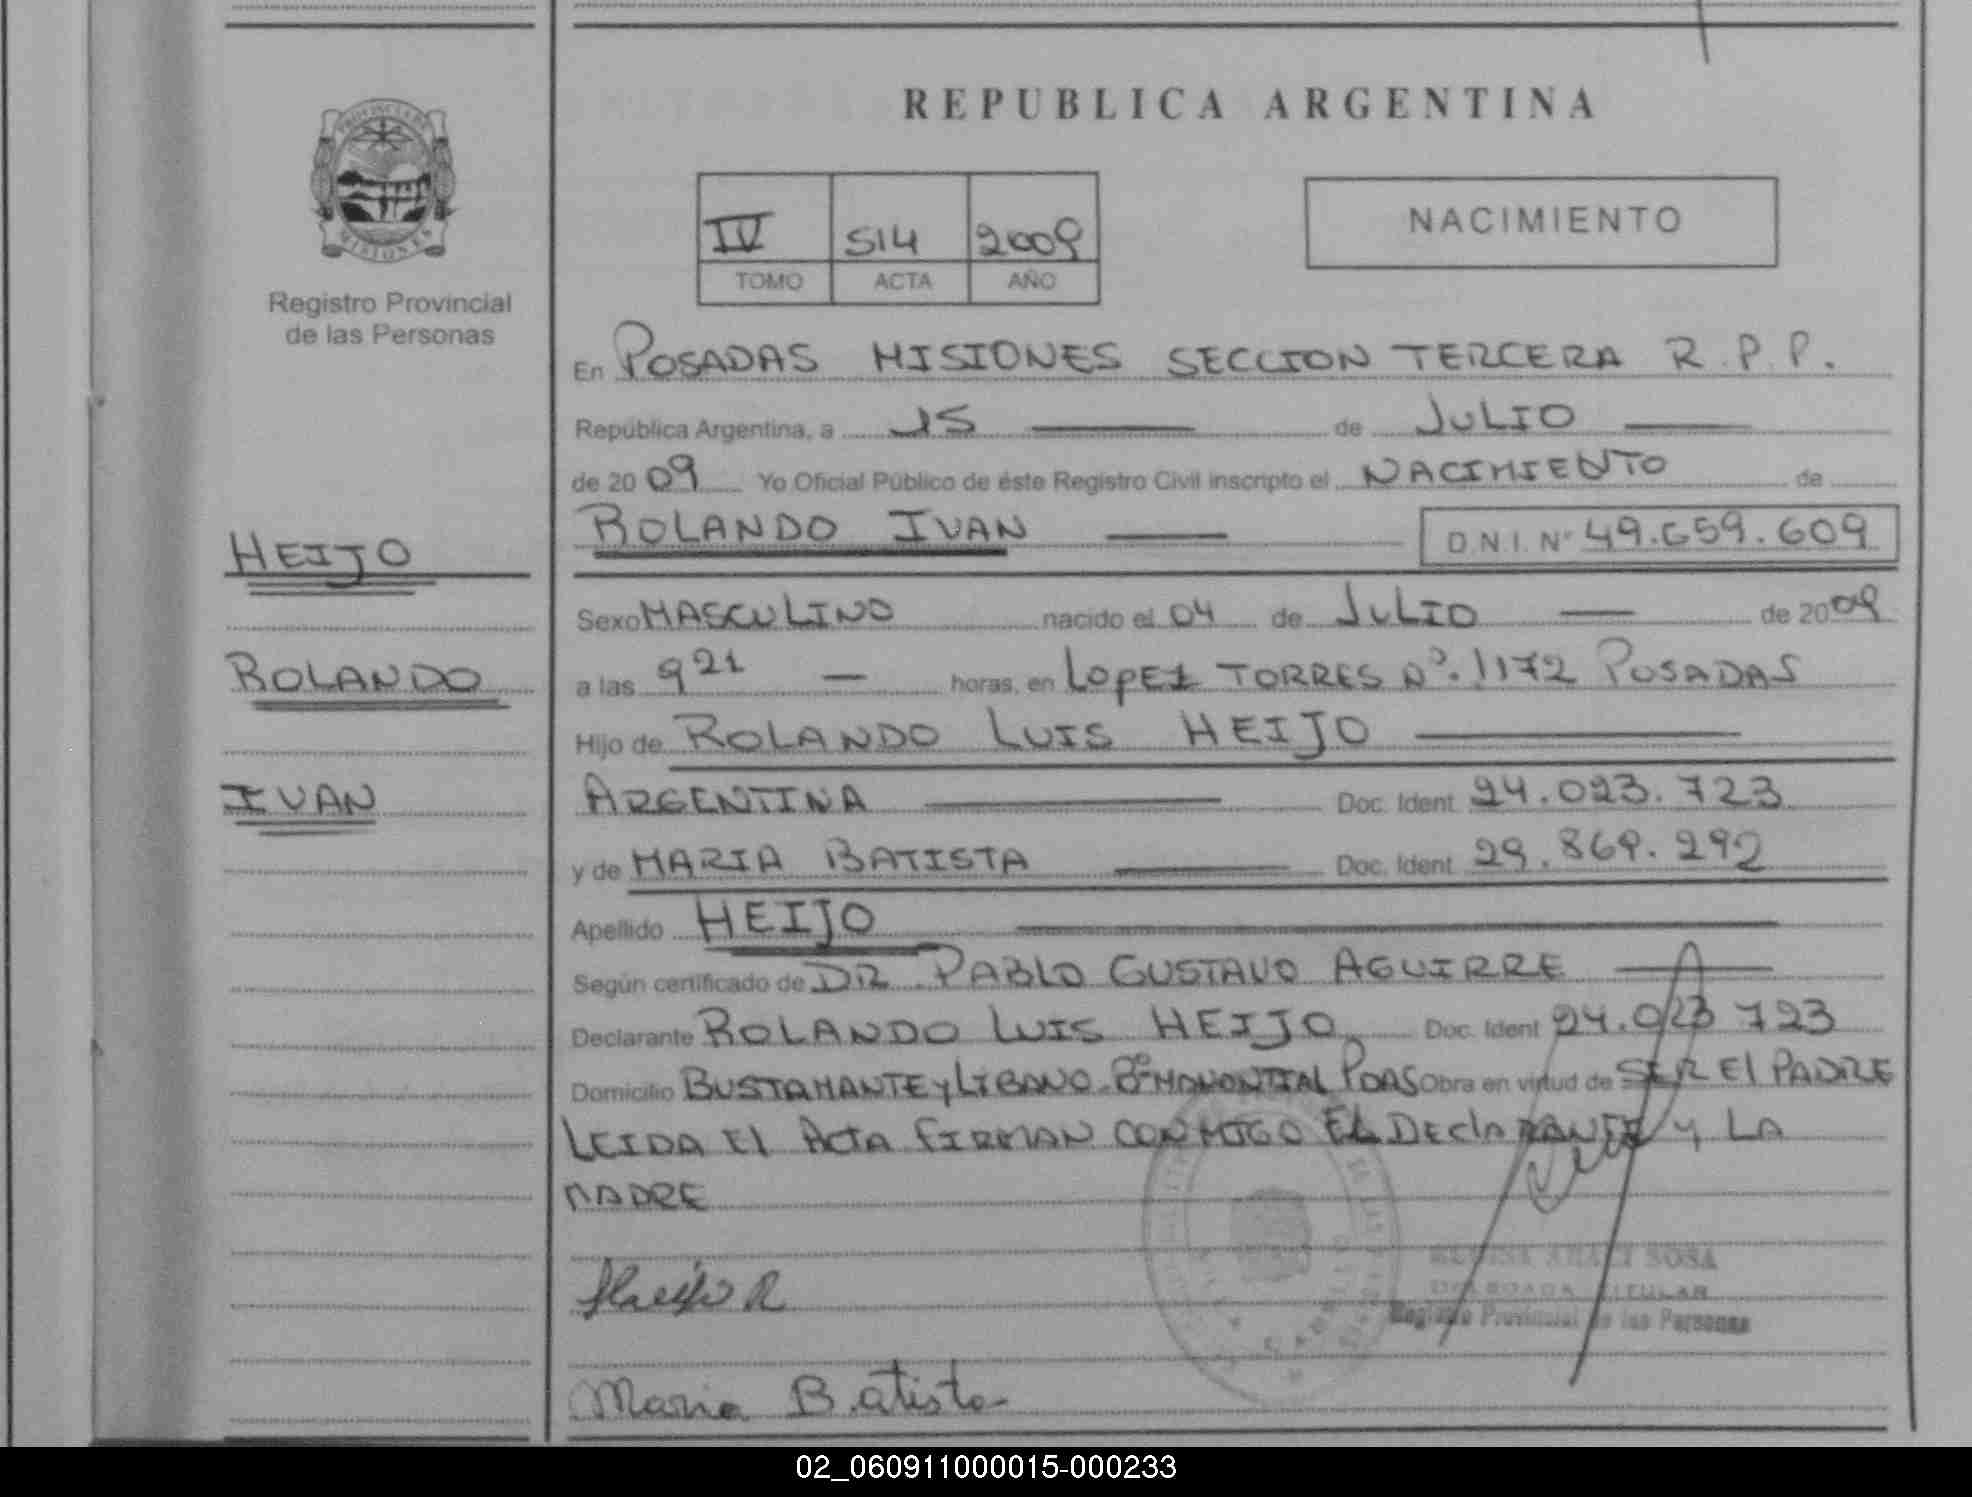 REPUBLICA ARGENTINA
IV S14 2009
TOMO ACTA AÑO
NACIMIENTO
PROVINCIA DE
MISIONES
Registro Provincial
de las Personas
En POSADAS MISIONES SECCION TERCERA R.P.P.
República Argentina, a 15 de JULIO
de 2009 Yo Oficial Público de éste Registro Civil inscripto el NACIMIENTO de
ROLANDO IVAN D.N.I. N° 49.659.609
HEIJO
ROLANDO
IVAN
Sexo MASCULINO nacido el 04 de JULIO de 2009
a las 9 21 horas, en LOPEZ TORRES N°. 1172 POSADAS
Hijo de ROLANDO LUIS HEIJO
ARGENTINA Doc. Ident 24.023.723
y de MARIA BATISTA Doc. Ident 29.869.292
Apellido HEIJO
Según certificado de DR. PABLO GUSTAVO AGUIRRE
Declarante ROLANDO LUIS HEIJO Doc. Ident 24.023 723
Domicilio BUSTAMANTE y LIBANO B° MANANTIAL PDAS Obra en virtud de SER El PADRE
LEIDA El ACTA FIRMAN CONMIGO EL DEClARANTE y LA
MADRE
Heijo R
SOSA
DELEGADA TITULAR
Registro Provincial de las Personas
Maria Batista
02_060911000015-000233